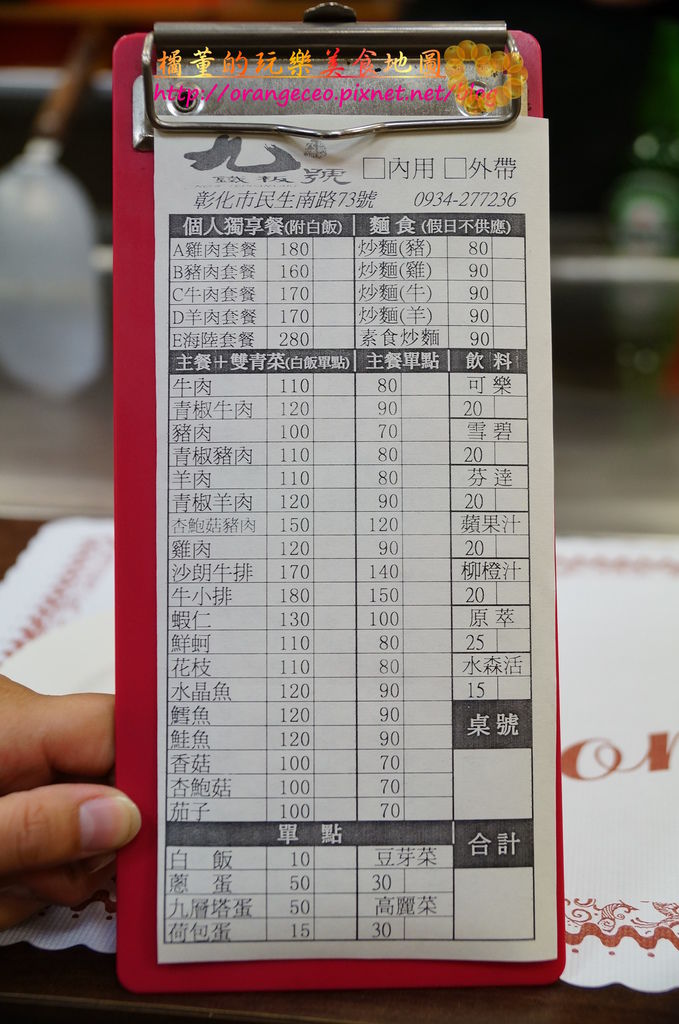 橘董的玩樂美食地圖
http://orangeceo.pixnet.net/blog
九號
鐵板
□內用 □外帶
彰化市民生南路73號 0934-277236
個人獨享餐(附白飯) 麵食(假日不供應)
A雞肉套餐 180 炒麵(豬) 80
B豬肉套餐 160 炒麵(雞) 90
C牛肉套餐 170 炒麵(牛) 90
D羊肉套餐 170 炒麵(羊) 90
E海陸套餐 280 素食炒麵 90
主餐+雙青菜(白飯單點) 主餐單點 飲料
牛肉 110 80 可樂
青椒牛肉 120 90 20
豬肉 100 70 雪碧
青椒豬肉 110 80 20
羊肉 110 80 芬達
青椒羊肉 120 90 20
杏鮑菇豬肉 150 120 蘋果汁
雞肉 120 90 20
沙朗牛排 170 140 柳橙汁
牛小排 180 150 20
蝦仁 130 100 原萃
鮮蚵 110 80 25
花枝 110 80 水森活
水晶魚 120 90 15
鱈魚 120 90 桌號
鮭魚 120 90
香菇 100 70
杏鮑菇 100 70
茄子 100 70
單點 合計
白飯 10 豆芽菜
蔥蛋 50 30
九層塔蛋 50 高麗菜
荷包蛋 15 30
on